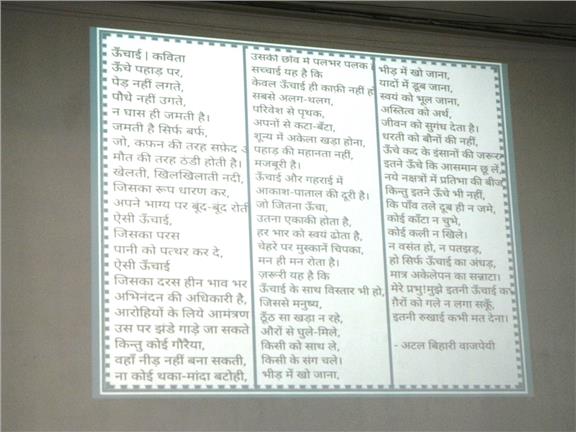 ऊँचाई | कविता
ऊँचे पहाड़ पर,
पेड़ नहीं लगते,
पौधे नहीं उगते,
न घास ही जमती है।
जमती है सिर्फ बर्फ,
जो, कफ़न की तरह सफ़ेद
मौत की तरह ठंडी होती है।
खेलती, खिलखिलाती नदी,
जिसका रूप धारण कर,
अपने भाग्य पर बूंद-बूंद रोती
ऐसी ऊँचाई,
जिसका परस
पानी को पत्थर कर दे,
ऐसी ऊँचाई
जिसका दरस हीन भाव भर
अभिनंदन की अधिकारी है,
आरोहियों के लिये आमंत्रण
उस पर झंडे गाड़े जा सकते
किन्तु कोई गौरैया,
वहाँ नीड़ नहीं बना सकती,
ना कोई थका-मांदा बटोही,
उसकी छाँव में पलभर पलक
सच्चाई यह है कि
केवल ऊँचाई ही काफ़ी नहीं
सबसे अलग-थलग,
परिवेश से पृथक,
अपनों से कटा-बँटा,
शून्य में अकेला खड़ा होना,
पहाड़ की महानता नहीं,
मजबूरी है।
ऊँचाई और गहराई में
आकाश-पाताल की दूरी है।
जो जितना ऊँचा,
उतना एकाकी होता है,
हर भार को स्वयं ढोता है,
चेहरे पर मुस्कानें चिपका,
मन ही मन रोता है।
ज़रूरी यह है कि
ऊँचाई के साथ विस्तार भी हो,
जिससे मनुष्य,
ठूँठ सा खड़ा न रहे,
औरों से घुले-मिले,
किसी को साथ ले,
किसी के संग चले।
भीड़ में खो जाना,
भीड़ में खो जाना,
यादों में डूब जाना,
स्वयं को भूल जाना,
अस्तित्व को अर्थ,
जीवन को सुगंध देता है।
धरती को बौनों की नहीं,
ऊँचे कद के इंसानों की जरूरत
इतने ऊँचे कि आसमान छू लें,
नये नक्षत्रों में प्रतिभा की बीज
किन्तु इतने ऊँचे भी नहीं,
कि पाँव तले दूब ही न जमे,
कोई काँटा न चुभे,
कोई कली न खिले।
न वसंत हो, न पतझड़,
हो सिर्फ ऊँचाई का अंधड़,
मात्र अकेलेपन का सन्नाटा।
मेरे प्रभु!मुझे इतनी ऊँचाई
ग़ैरों को गले न लगा सकूँ,
इतनी रुखाई कभी मत देना।
- अटल बिहारी वाजपेयी